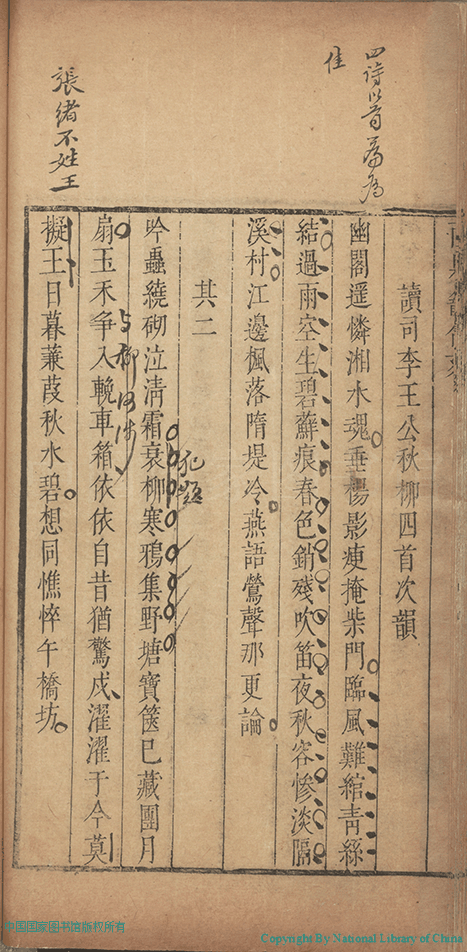 四詩以首篇為
佳
讀司李王公秋柳四首次韻
幽閣遥憐湘水魂垂楊影瘦掩柴門臨風難綰青絲
結過雨空生碧蘚痕春色銷殘吹笛夜秋容慘淡隔
溪村江邊楓落隋堤冷燕語鶯聲那更論
其二
犯題
吟蟲繞砌泣清霜衰柳寒鴉集野塘寶篋已藏團月
與柳何涉
扇玉禾争入輓車箱依依自昔猶驚戍濯濯于今莫
擬王日暮蒹葭秋水碧想同憔悴午橋坊
張緒不姓王
中国国家图书馆版权所有
Copyright By National Library of China